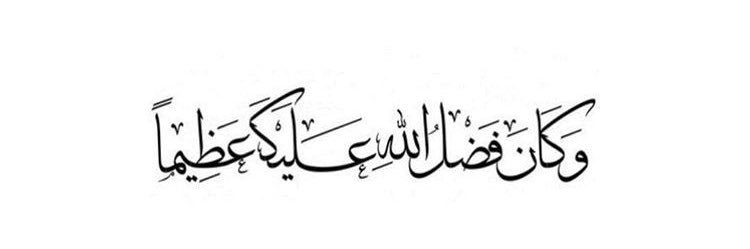 وَكَانَ فَضْلُ اللَّهِ عَلَيْكَ عَظِيمًا